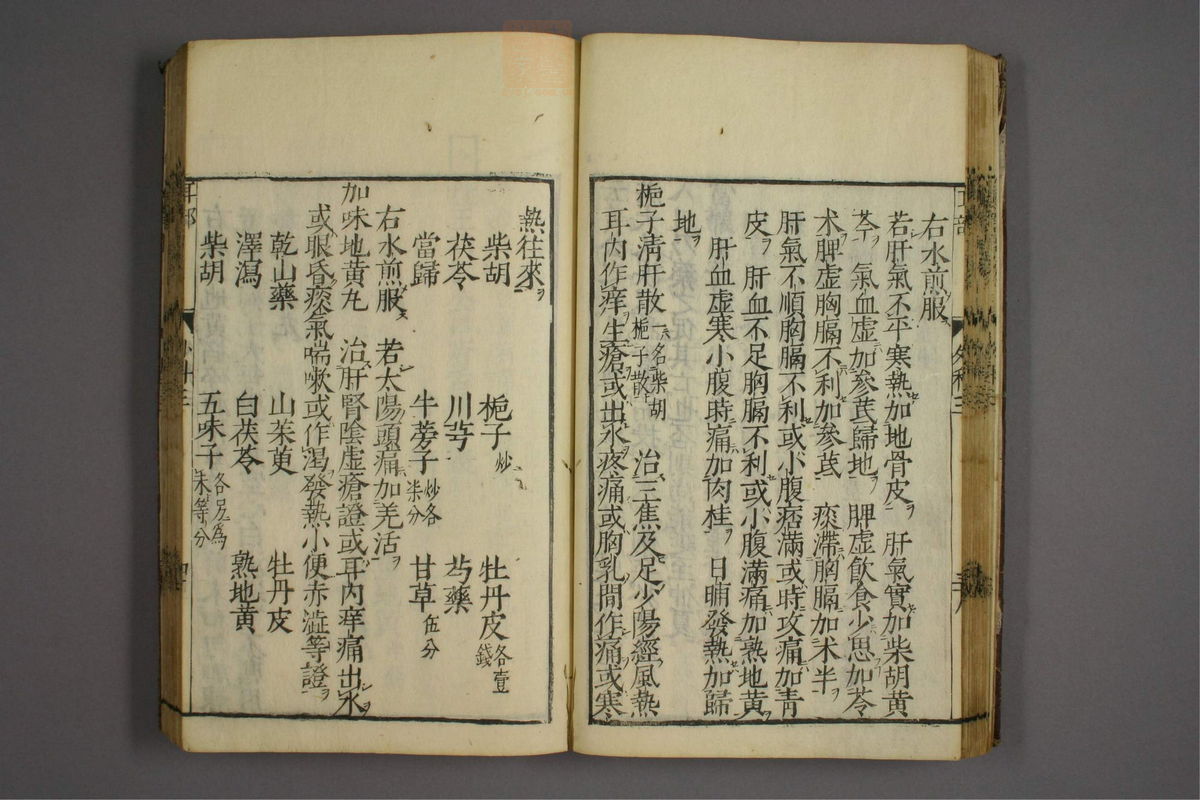 右水煎服
若肝氣不平寒熱加地骨皮 肝氣實加柴胡黃
芩 氣血虛加參芪歸地 脾虛飲食少思加苓
朮脾虛胸膈不利加參芪 痰滯胸膈加朮半
肝氣不順胸膈不利或小腹痞滿或時攻痛加青
皮 肝血不足胸膈不利或小腹滿痛加熟地黃
肝血虛寒小腹時痛加肉桂 日晡發熱加歸
地
梔子清肝散一名柴胡梔子散 治三焦及足少陽經風熱
耳內作痒生瘡或出水疼痛或胸乳間作痛或寒
熱往來
柴胡 梔子炒 牡丹皮各壹錢
茯苓 川芎 芍藥
當歸 牛蒡子炒各柒分 甘草伍分
右水煎服 若太陽頭痛加羌活
加味地黃丸 治肝腎陰虛瘡證或耳內痒痛出水
或眼昏痰氣喘嗽或作渴發熱小便赤澁等證
乾山藥 山茱萸 牡丹皮
澤瀉 白茯苓 熟地黃
柴胡 五味子各另為末等分